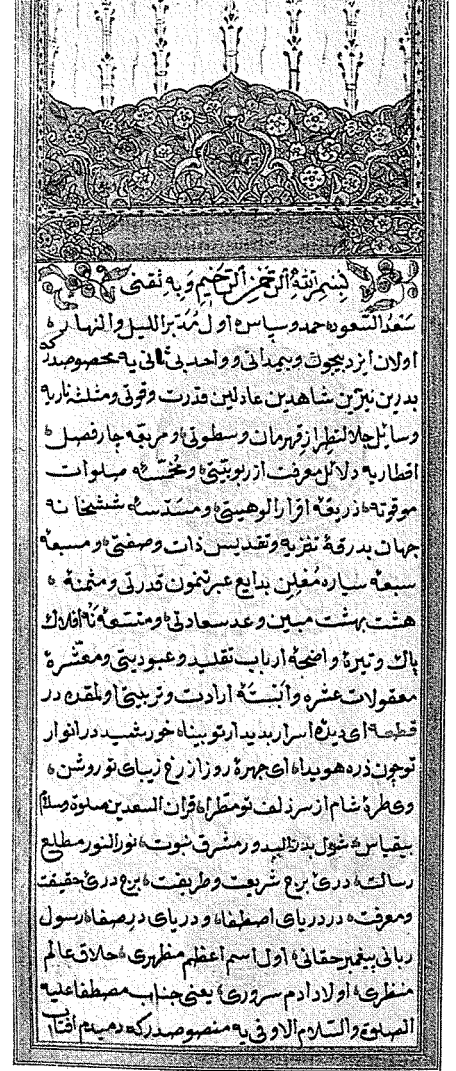 بِسْمِ اللهِ الرَّحْمٰنِ الرَّحِيمِ وَبِهِ ثِقَتِى
سَعْدُ السّعود حمد وسپاس اول مُدَبّر الليل والنهار
اولان ايزد بيچون وبيهمدانى وواحد بى ثانى يه مخصوصدر كه
بدرين نيّرين شاهدين عادلين قدرت وقوتى ومثلثه ناريه
وسائل جلالتطراز قهرمان وسطوتى ومربعه چار فصل
اقطاريه دلائل معرفت از ربوبيتى ومخمّسه صلوات
موقوته ذريعهٔ اقرار الوهيتى ومسدّسه ششخانه
جهان بدرقهٔ تنزيه وتقديس ذات وصفتى ومسبعه
سبعه سياره مُعْلِن بدايع عبرتنمون قدرتى ومثمنه
هشت بهشت مبين وعد سعادتى ومتسعه نُه افلاك
پاك وتيرهٔ واضحهٔ ارباب تقليد وعبوديتى ومعشّره
معقولات عشره وابستهٔ ارادت وتربيتى اولمقده در
قطعه اى ديدهٔ اسرار بديدار تو بيناه خورشيد در انوار
تو چون ذره هويداه اى چهرهٔ روز از رخ زيباى تو روشن
وى طرهٔ شام از سر زلف تو مطرا قران السعدين صلوة وسلام
بيقياس شول بدر مشرق نبوت نور النور مطلع
رسالت درئ برج شريعت وطريقت برج درئ حقيقت
ومعرفت در درياى اصطفا ودرياى در صفا رسول
ربانى پيغمبر حقانى اول اسم اعظم مظهرى خلاق عالم
منظرى اولاد ادم سرورى يعنى جناب مصطفا عليه
الصلوة والسلام الاوفى يه منصوصدر كه دميدم افتاب